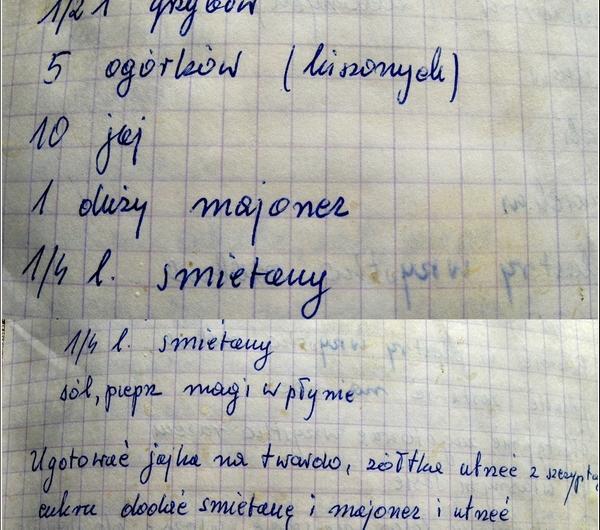 1/2 l grzybów
5 ogórków (kiszonych)
10 jaj
1 duży majonez
1/4 l. śmietany
1/4 l. śmietany
sól, pieprz magi w płynie
Ugotować jajka na twardo, żółtka utrzeć z szczyptą
cukru dodać śmietanę i majonez i utrzeć